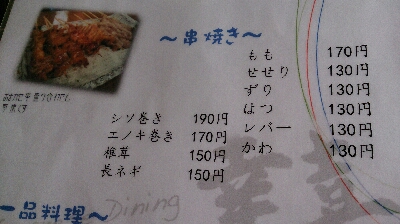 ～串焼き～
もも 170円
せせり 130円
ずり 130円
はつ 130円
レバー 130円
かわ 130円
シソ巻き 190円
エノキ巻き 170円
椎茸 150円
長ネギ 150円
一品料理～
Dining